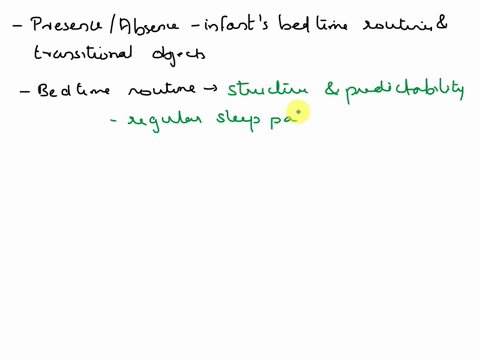 - Presence / Absence - infant's bedtime routines &
transitional objects
- Bedtime routine → structure & predictability
- regular sleep pa